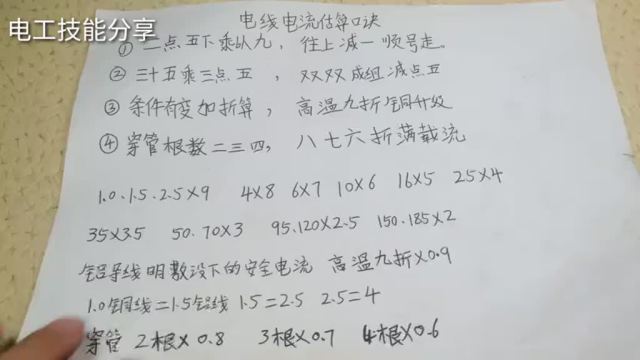 电工技能分享
电线电流估算口诀
① 二点五下乘以九，往上减一顺号走。
② 三十五乘三点五，双双成组减点五
③ 条件有变加折算，高温九折铜升级
④ 穿管根数二三四，八七六折满载流
1.0.1.5.2.5×9 4×8 6×7 10×6 16×5 25×4
35×3.5 50.70×3 95.120×2.5 150.185×2
铝导线明敷设下的安全电流 高温九折×0.9
1.0铜线=1.5铝线 1.5=2.5 2.5=4
穿管 2根×0.8 3根×0.7 4根×0.6